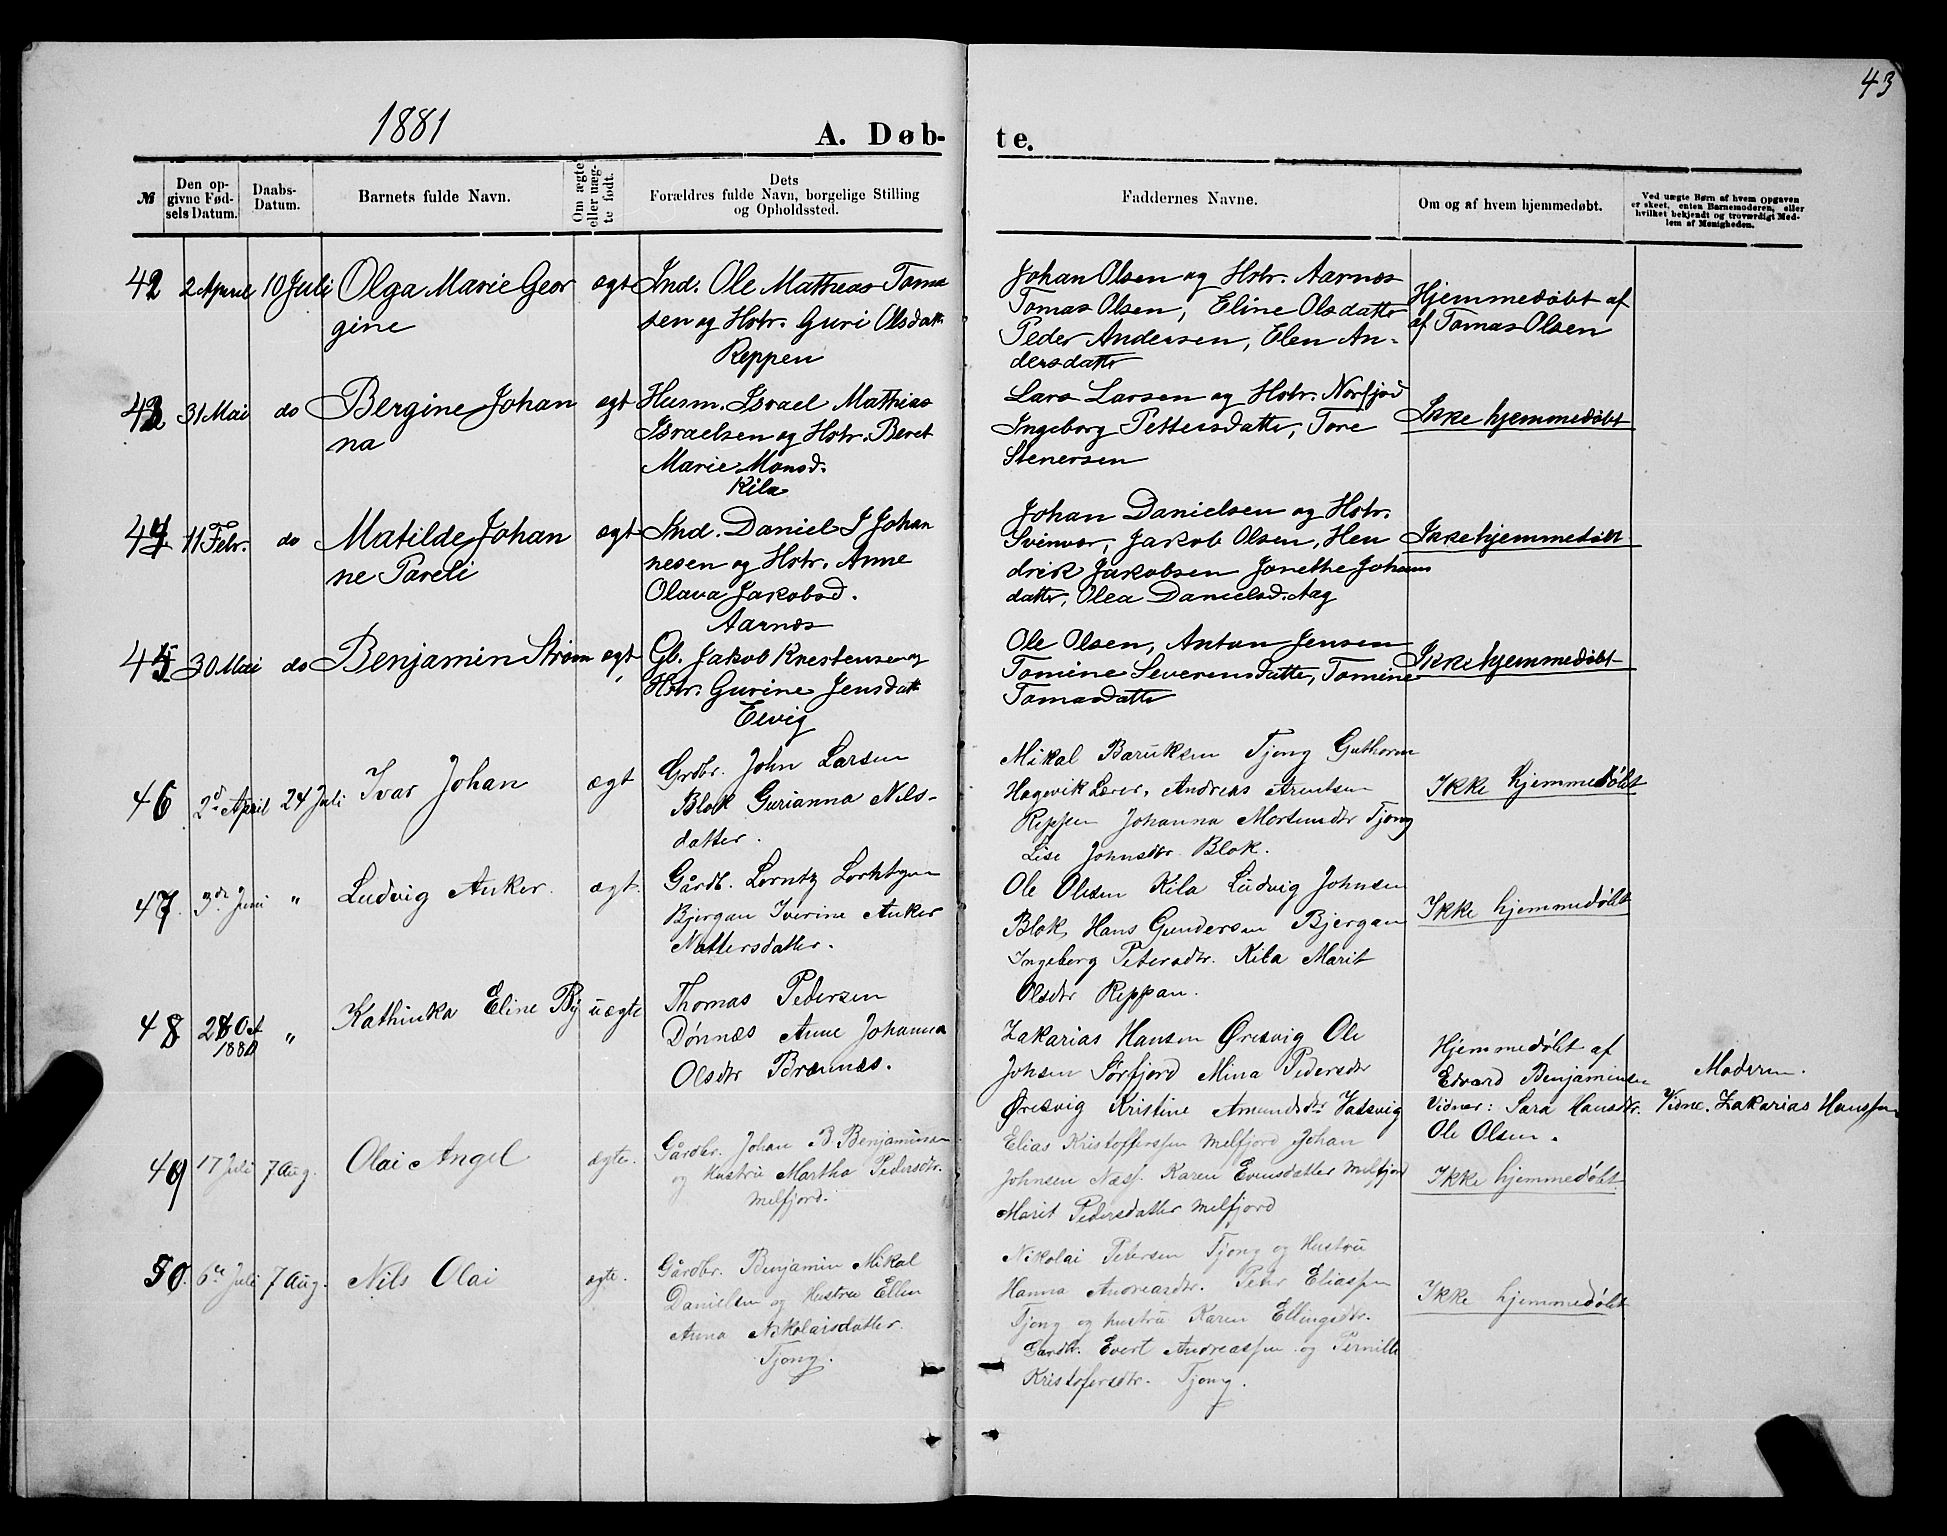 43
1881
A. Døb-
te.
№
Den op-
givne Fød-
sels Datum.
Daabs-
Datum.
Barnets fulde Navn.
Om ægte
eller uæg-
te født.
Dets
Forældres fulde Navn, borgelige Stilling
og Opholdssted.
Faddernes Navne.
Om og af hvem hjemmedøbt.
Ved uægte Børn af hvem Opgaven
er skeet, enten Barnemoderen, eller
hvilket bekjendt og troværdigt Med-
lem af Menigheden.
42 2 April 10 Juli Olga Marie Geor
gine
ægt
Ind. Ole Mathias Toma
sen og Hstr. Guri Olsdatt
Reppen
Johan Olsen og Hstr. Aarnæs
Tomas Olsen, Eline Olsdatter
Peder Andersen, Elen An-
dersdatter
Hjemmedøbt af
af Tomas Olsen
43 31 Mai do Bergine Johan
na
ægt
Husm. Israel Mathias
Israelsen og Hstr. Beret
Marie Monsd.
Kila
Lars Larsen og Hstr. Norfjod
Ingeborg Pettersdatter, Tore
Stenersen
Ikke hjemmedøbt
44 11 Febr. do Matilde Johan
ne Pareli
ægt
Ind. Daniel J Johan
nesen og Hstr. Anne
Olava Jakobsd.
Aarnæs
Johan Danielsen og Hstr.
Svinvær, Jakob Olsen, Hen
drik Jakobsen Jonethe Johans
datter, Olea Danielsd. Aag
Ikke hjemmedøbt
45 30 Mai do Benjamin Strøm
ægt
Gb. Jakob Krestensen og
Hstr. Gurine Jensdatt
Elvig
Ole Olsen, Anton Jensen
Tomine Severensdatter, Tomine
Tomasdatter
Ikke hjemmedøbt
46 2d April 24 Juli Ivar Johan
ægt
Grdbr. John Larsen
Blok Gurianna Nils-
datter.
Mikal Baruksen Tjong Guthorm
Hagevik Lærer, Andreas Arentsen
Reppen Johanna Mortensdtr Tjong
Lise Johnsdtr. Blok.
Ikke hjemmedøbt
47. 3de Juni " Ludvig Anker.
ægt.
Gårdb. Lorntz
Bjergan Iverine Anker
Nattersdatter.
Ole Olsen Kila Ludvig Johnsen
Blok, Hans Gundersen Bjergan
Ingeborg Petersdtr. Kila Marit
Olsdtr Reppan.
Ikke hjemmedøbt
48 28 Oct
1880
" Kathinka Eline By
uægte
Thomas Pedersen
Dønnæs Anne Johanna
Olsdtr Brænnæs.
Zakarias Hansen Øresvig Ole
Johsen Sørfjord Mina Pedersdtr
Øresvig Kristine Amundsdtr Vatsvig
Hjemmedøbt af
Edvard Benjaminsen
Vidner: Sara Hansdtr.
Ole Olsen.
Moderen.
Vidne. Zakarias Hanssen
49 17 Juli 7 Aug. Olai Angel
ægte.
Gårdbr. Johan B. Benjaminsen
og Hustru Martha Pedersdtr.
Melfjord.
Elias Kristofferssen Melfjord Johan
Johnsen Næss. Karen Evensdatter Melfjord
Marit Pedersdatter Melfjord
Ikke hjemmedøbt.
50. 6te Juli 7 Aug. Nils Olai
ægte.
Gårdbr. Benjamin Mikal
Danielsen og Hustru Ellen
Anna Nikolaisdatter.
Tjong.
Nikolai Petersen Tjong og Hustru
Hanna Andreasdtr. Peter Eliassen
Tjong og hustru Karen Ellingsdtr.
Gardbr. Evert Andreassen og Pernille
Kristofersdtr. Tjong.
Ikke hjemmedøbt